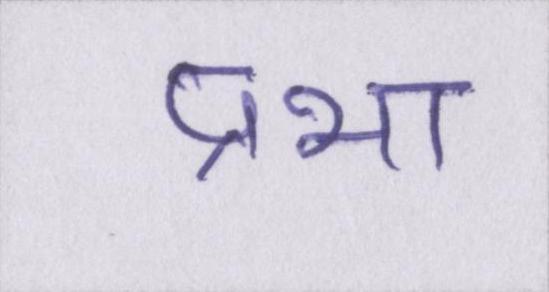 प्रभा